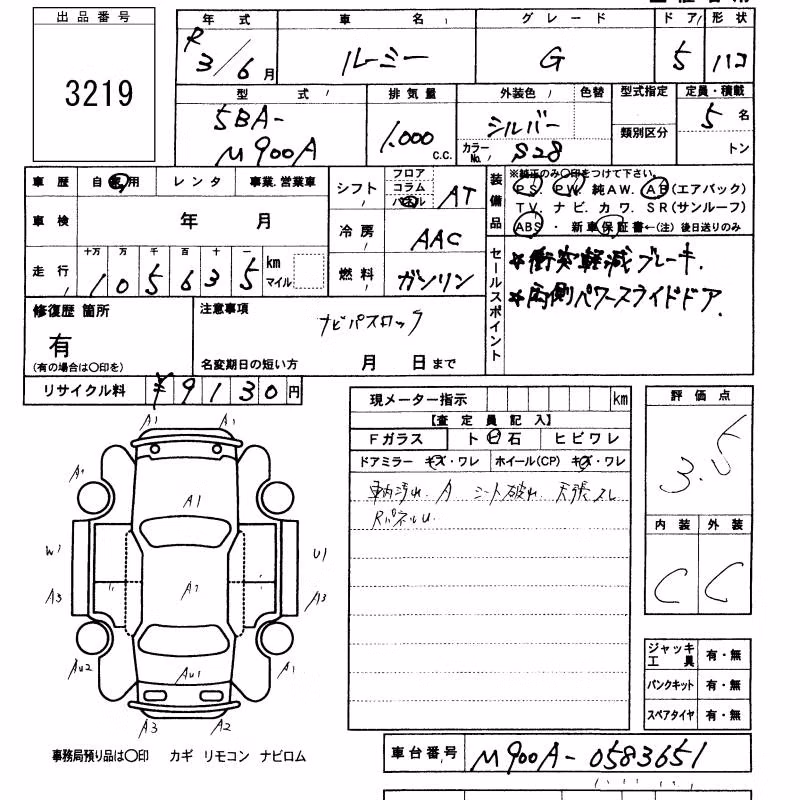 出品番号
3219
年式 車名 グレード ドア 形状
R3/6月 ルーミー G 5 ハコ
型式 排気量 外装色 色替 型式指定 定員・積載
5BA-M900A 1.000 C.C. シルバー 類別区分 5名
カラーNo. S28 トン
車歴 自家用 レンタ 事業.営業車
シフト フロア コラム パネル AT
装備品
※純正のみ〇印をつけて下さい。
PS PW 純AW. AB(エアバック)
TV. ナビ. カワ. SR(サンルーフ)
ABS ・ 新車保証書←(注) 後日送りのみ
車検 年 月
冷房 AAC
走行 十万 万 千 百 十 一
105635 km マイル
燃料 ガソリン
セールスポイント
☆衝突軽減ブレーキ.
☆両側パワースライドドア.
修復歴 箇所
有
(有の場合は〇印を)
注意事項
ナビパスロック
名変期日の短い方 月 日まで
リサイクル料 ¥9130円
現メーター指示 km
【査定員記入】
Fガラス トビ石 ヒビワレ
ドアミラー キズ・ワレ ホイール(CP) キズ・ワレ
車内汚れ. A シート破れ 天張スレ
RパネルU
評価点
3.5
内装 外装
C C
A1 A1
A1 A1
W1 U1
A3 A2 A3
AU2 AU1 A1
A3 A2
ジャッキ工具 有・無
パンクキット 有・無
スペアタイヤ 有・無
事務局預り品は〇印 カギ リモコン ナビロム
車台番号 M900A-0583651